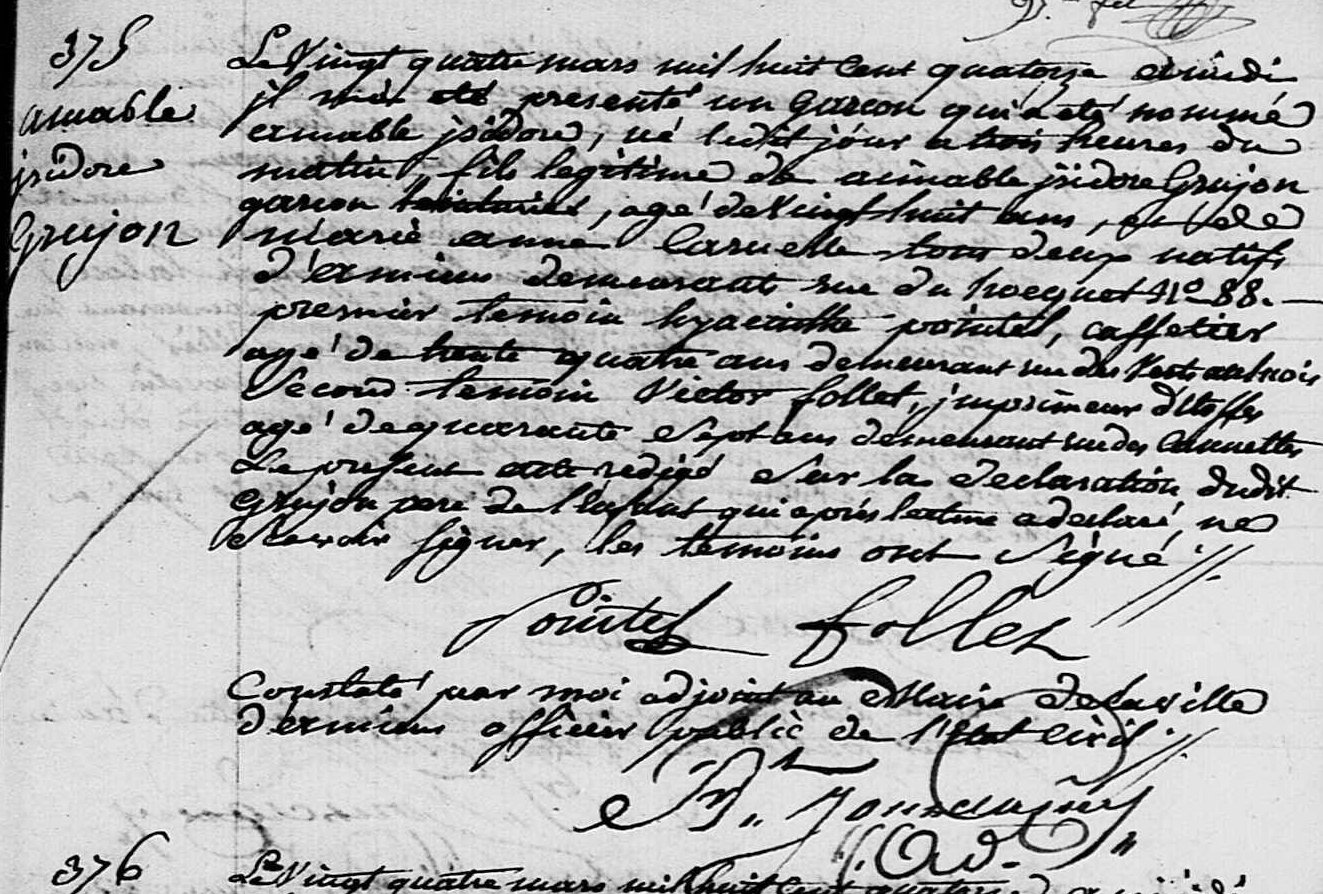 375
amable
jsidore
Grujon
Le Vingt quatre mars mil huit Cent quatorze a midi
jl m'a eté presenté un garcon qui a eté nommé
amable jsidore, né ledit jour a trois heures du
matin, fils legitime de aimable jsidore Grujon
garcon teinturier, agé de Vingt huit ans, et de
marie anne Caruelle tous deux natifs
d'amiens demeurant rue du hocquet N° 88.
premier temoin hyacinthe pointel, caffetier
agé de trente quatre ans demeurant rue des Verts aulnois
Second temoin Victor follet, jmprimeur d'Etoffes
agé de quarante Sept ans demeurant rue des Cannettes
Le present acte redigé Sur la declaration dudit
Grujon pere de l'Enfant qui après lecture a declaré ne
Scavoir signer, les temoins ont Signé.
Pointel follet
Constaté par moi adjoint au Maire de la ville
d'amiens officier public de l'Etat Civil.
ad.
376
Le Vingt quatre mars mil huit Cent quatorze a midi